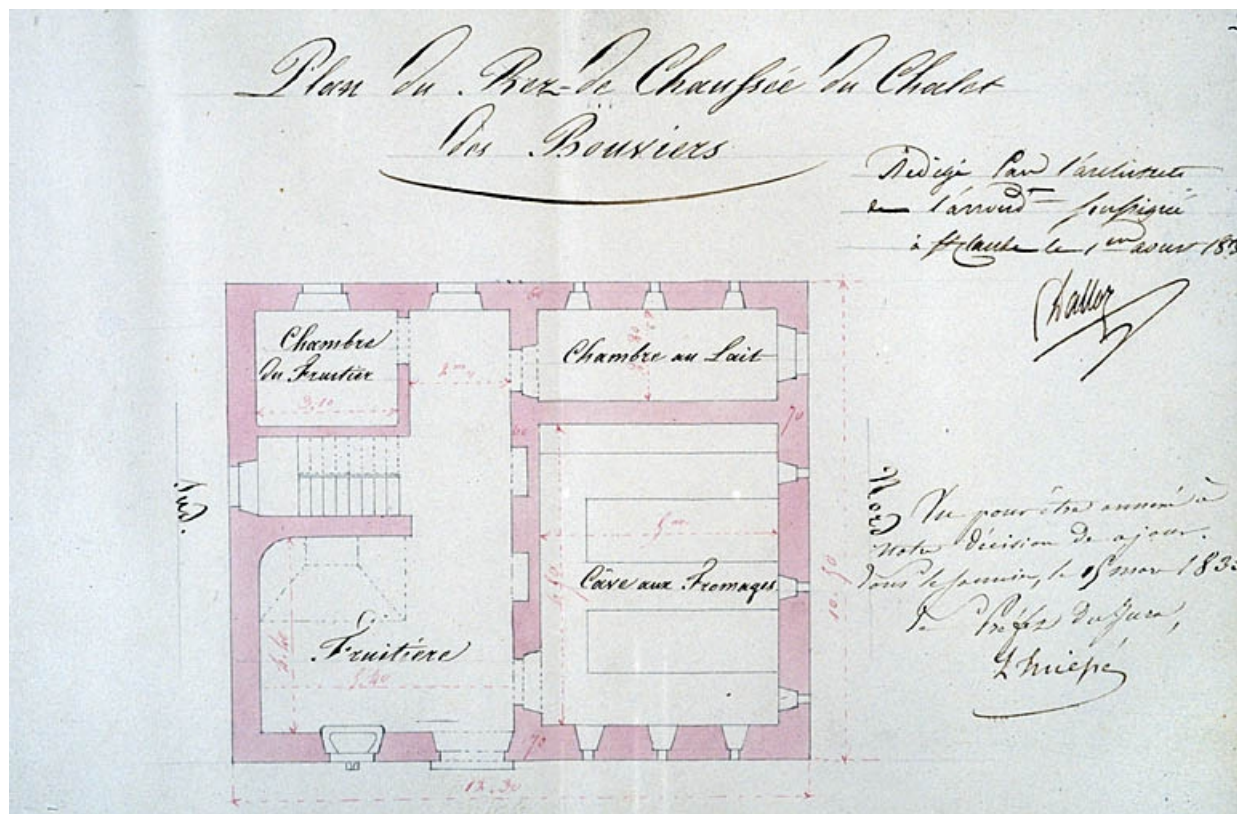 Plan du Rez-de Chaussée du Chalet
des Bouviers
Rédigé Par l'architecte
de l'arrondt soussigné
à St Claude le 1er aout 183
Dalloz
Chambre
du Fruitier
Chambre au Lait
Câve aux Fromages
Fruitière
Sud.
Nord
60
3,10
70
60
5,40
5,40
70
12.30
10.50
Vu pour être annexé à
notre décision de ce jour.
Lons le Saunier, le 15 mar 183
Le Préfet du Jura,